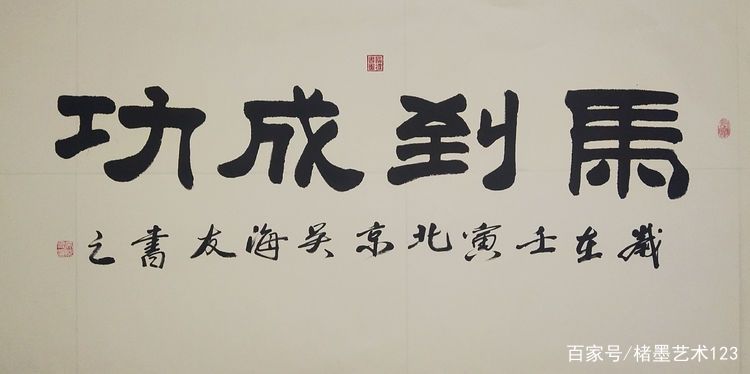 馬到成功
歲在壬寅北京吴海友書之
百家号/楮墨艺术123